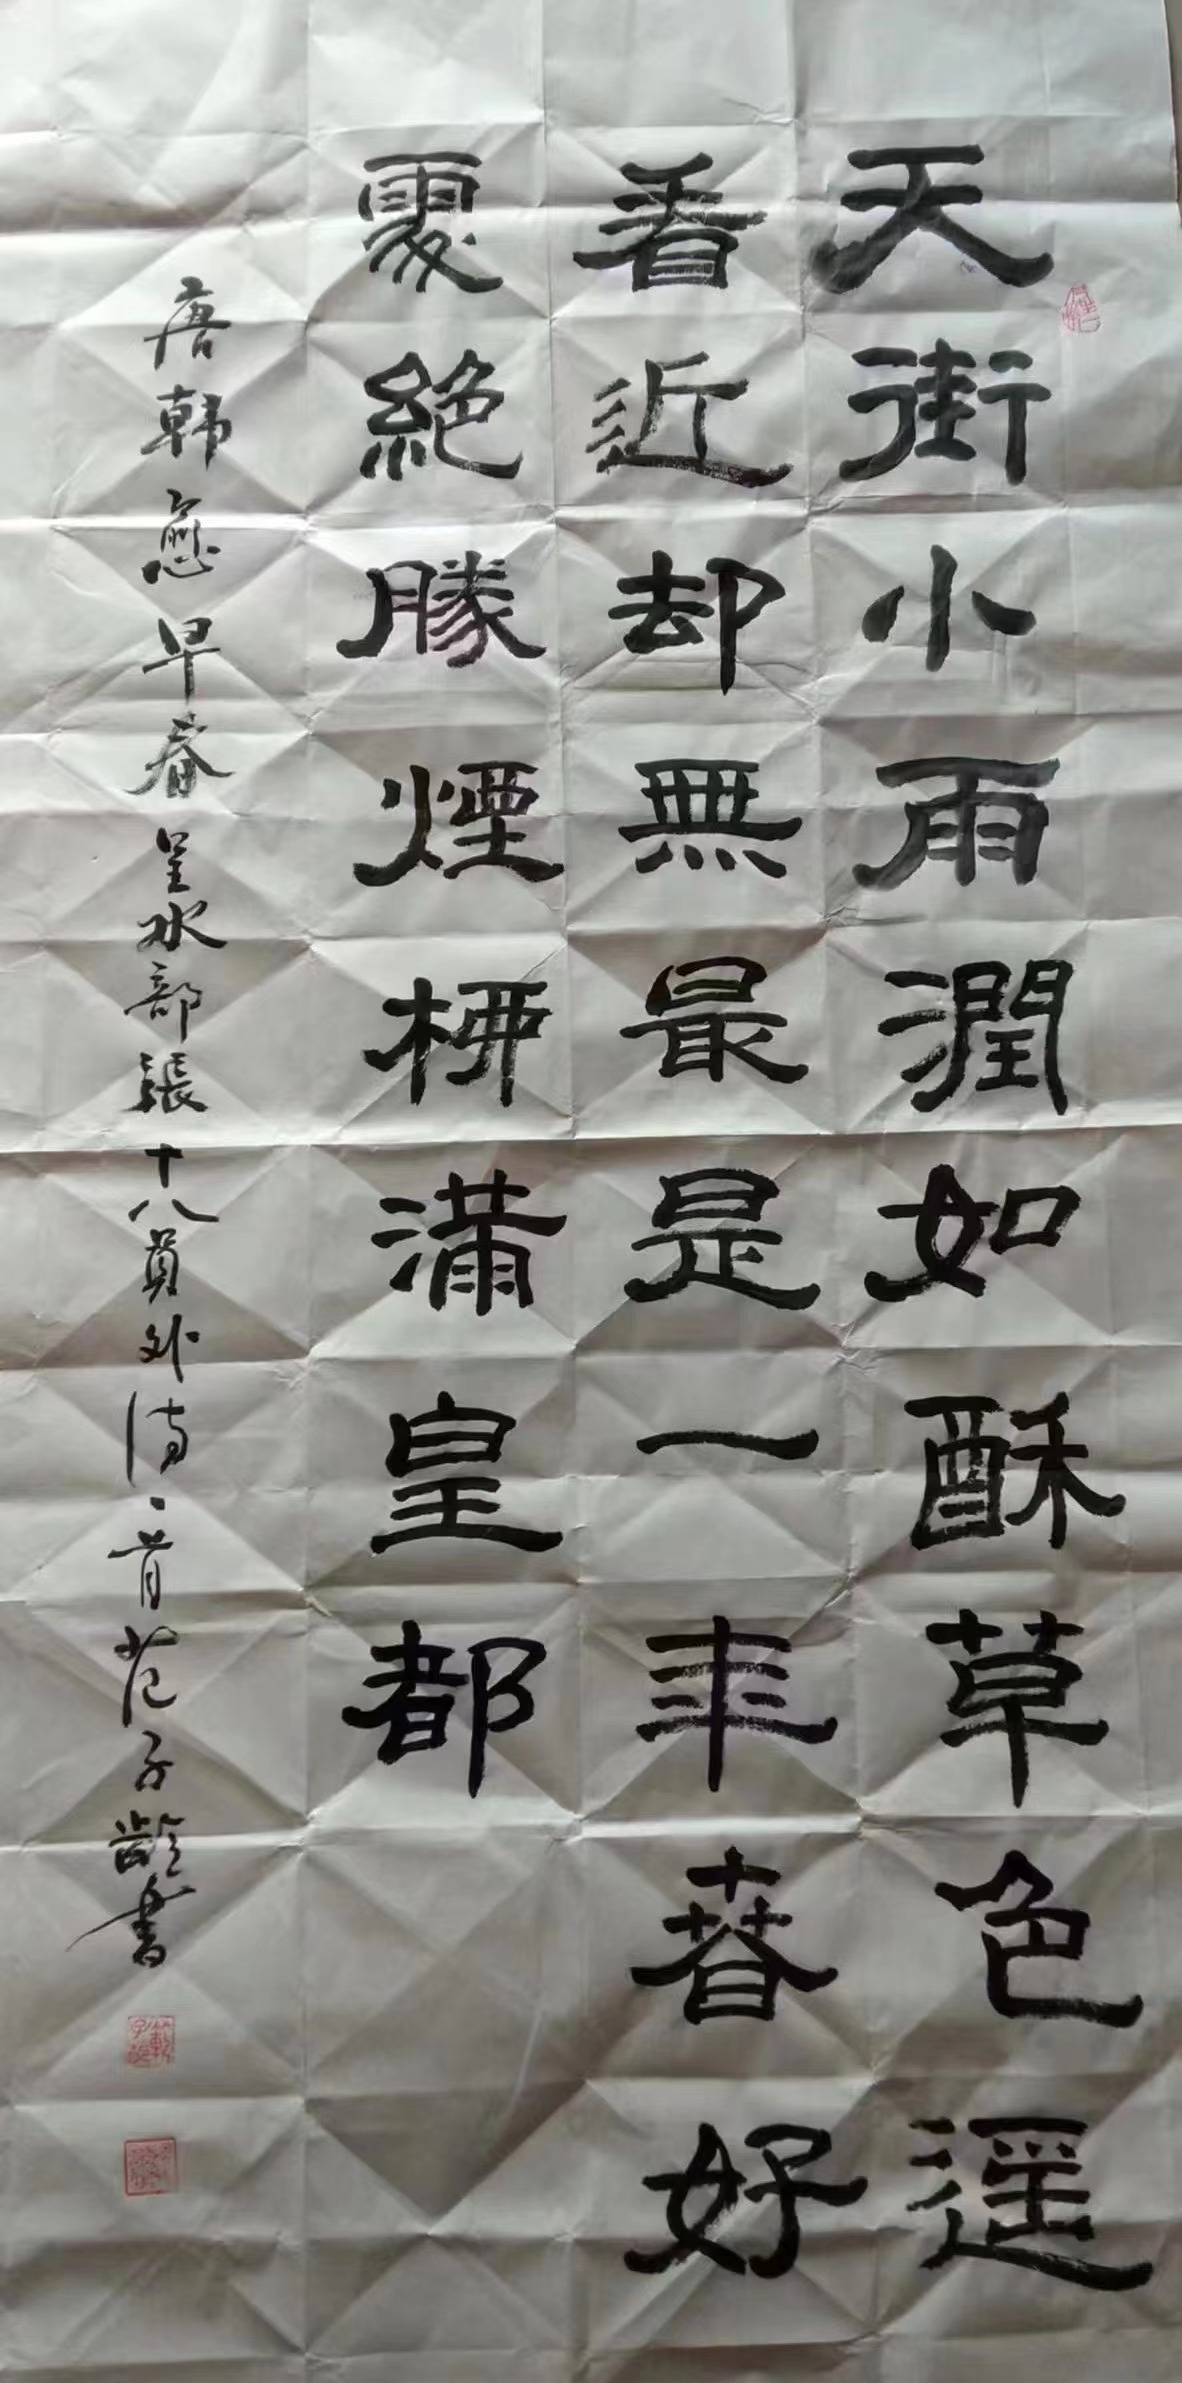 天街小雨潤如酥草色遥
看近却無最是一年春好
處絕勝煙柳滿皇都
唐韓愈早春呈水部張十八員外詩一首范子龄書